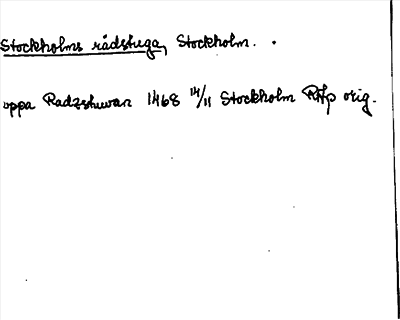 Stockholms rådstuga, Stockholm.
oppa Radzstuwan 1468 14/11 Stockholm RAp orig.